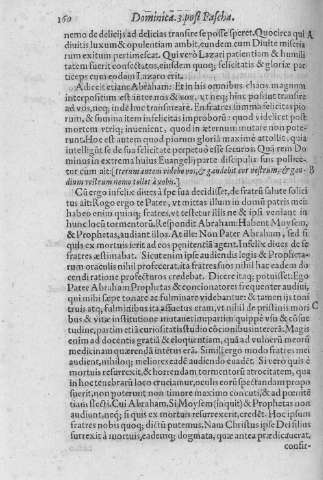 160 Dominica. 3. post Pascha.
nemo de delicijs ad delicias transire se posse speret. Quocirca qui A
diuitis luxum & opulentiam ambit, eundem cum Diuite miseria
rum exitum pertimescat. Qui verò Lazari patientiam & humili
tatem fuerit consectatus, eiusdem quoq; felicitatis & gloriæ par
ticeps cum eodem Lazaro erit.
Adiecit etiane Abraham: Et in his omnibus chaos magnum
interpositum est inter nos & vos, vt neq; hinc possint transire
ad vos, neq; inde huc transmeare. En status summa felicitas pio
rum, & summa item infelicitas improborū: quod videlicet post
mortem vtriq; inueniunt, quod in æternum mutare non pote-
runt. Hoc est autem quod piorum gloriã maximè attollit, quia
intelligūt se de sua felicitate perpetuò esse securos. Quã rem Do
minus in extrema huius Euangelij parte discipulis suis pollice-
tur cum ait: [Iterum autem videbo vos, & gaudebit cor vestrum, & gau- B
dium vestrum nemo tollet à vobis.]
Cũ ergo infelix diues à spe sua decidisset, de fratrũ salute solici
tus ait: Rogo ergo te Pater, vt mittas illum in domũ patris mei:
habeo enim quinq; fratres, vt testetur illis ne & ipsi veniant in
hunc locũ tormentorũ. Respōdit Abraham: Habent Moysem,
& Prophetas, audiant illos. At ille: Non Pater Abraham, sed si
quis ex mortuis ierit ad eos pœnitentiã agent. Infelix diues de se
fratres æstimabat. Sicut enim ipse audiendis legis & Propheta-
rum oraculis nihil profecerat, ita fratres suos nihil hac eadem do
cendi ratione profecturos credebat. Dicere itaq; potuisset: Ego
Pater Abraham Prophetas & concionatores frequenter audiui,
qui mihi sæpe tonare ac fulminare videbantur: & tamen ijs toni
truis atq; fulminibus ita assuetus eram, vt nihil de pristinis mori C
bus & vitæ institutione mutaret: impartim quippe vsu & cōsue
tudine, partim etiã curiositatis studio cōcionibus intererã. Magis
enim ad docentis gratiã & eloquentiam, quã ad vulnerũ meorũ
medicinam quærendã intētus erã. Simili ergo modo fratres mei
audient, nihiloq; meliores eadẽ audiendo euadēt. Si verò quis è
mortuis resurrexit, & horrendam tormentorũ atrocitatem, qua
in hoc tenebrarũ loco cruciamur, oculis eorũ spectandam propo
suerit, non poterunt non timore maximo concuti, & ad pœnitē
tiam flecti. Cui Abraham, Si Moysem (inquit) & Prophetas non
audiunt, neq; si quis ex mortuis resurrexerit, credēt. Hoc ipsum
fratres nobis quoq; dictũ putemus. Nam Christus ipse Dei filius
surrexit à mortuis, eademq; dogmata, quæ antea prædicauerat,
consir-